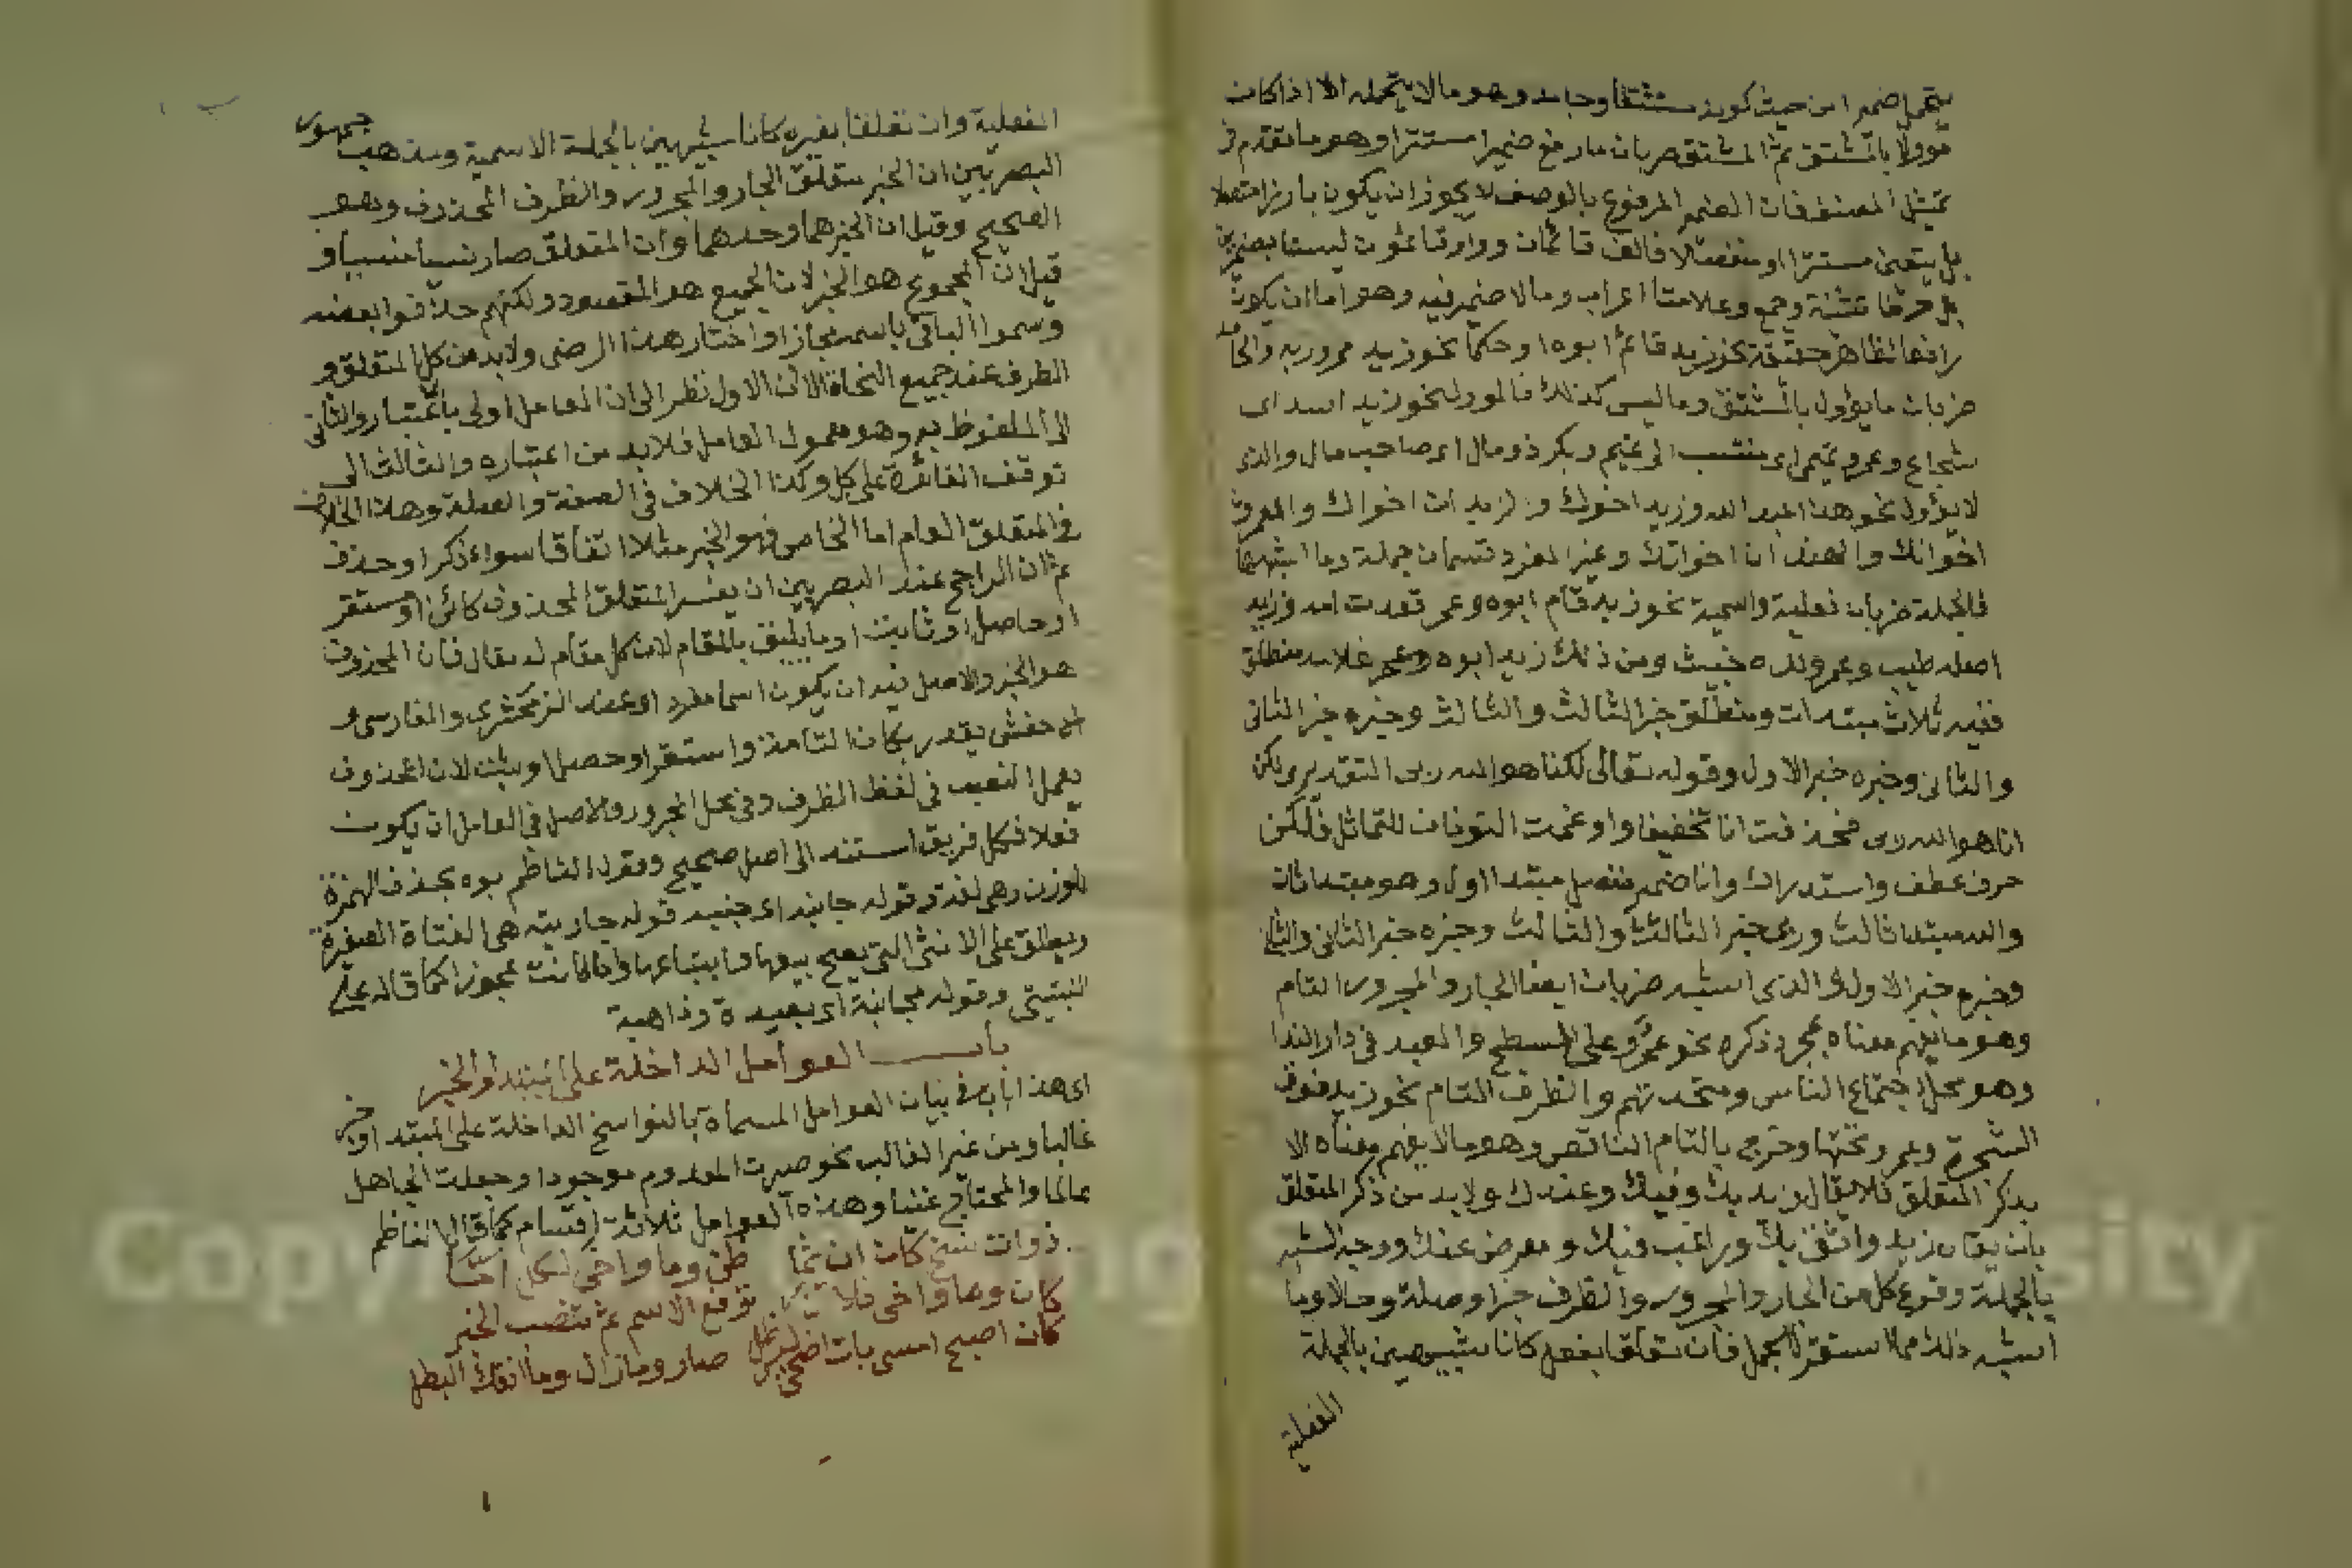 يتحمل ضميرا من حيث كونه مشتقا وجامد وهو مالا يتحمله الا اذا كان
مؤولا بالمشتق ثم المشتق ضربان ما رفع ضميرا مستترا وهو ما تقدم في
تمثيل المصنف فان الضمير المرفوع بالوصف لا يجوز ان يكون بارزا متصلا
بل يتعين مستترا او منفصلا فالف قائمان وواو قائمون ليستا بضميرين
بل حرفا تثنية وجمع وعلامتا اعراب ومالا ضمير فيه وهو اما ان يكون
رافعا لظاهر حقيقة نحو زيد قائم ابوه او حكما نحو زيد ممرور به والجامد
ضربان ما يؤول بالمشتق وما ليس كذلك فالمؤول نحو زيد اسد اى
شجاع وعمرو تميمى اى منتسب الى تميم وبكر ذو مال اى صاحب مال والذى
لا يؤول نحو هذا عبد الله وزيد اخوك والزيدان اخواك والعمرون
اخوانك والهندات اخواتك وغير المفرد قسمان جملة وما اشبهها
فالجملة ضربان فعلية واسمية نحو زيد قام ابوه وعمرو قعدت امه وزيد
اصله طيب وعمرو ولده خبيث ومن ذلك زيد ابوه وعمرو غلامه منطلق
ففيه ثلاث مبتدات ومنطلق خبر الثالث والثالث وخبره خبر الثانى
والثانى وخبره خبر الاول وقوله تعالى لكنا هو الله ربى التقدير لكن
انا هو الله ربى فحذفت انا تخفيفا وادغمت النونان للتماثل فلكن
حرف عطف واستدراك وانا ضمير منفصل مبتدا اول وهو مبتدا ثان
والله مبتدا ثالث وربى خبر الثالث والثالث وخبره خبر الثانى والثانى
وخبره خبر الاول والذى اشبه ضربان ايضا الجار والمجرور التام
وهو ما يفهم معناه بمجرد ذكره نحو عمرو على السطح والعبيد فى دار الندا
وهو محل اجتماع الناس ومتحدثهم والظرف التام نحو زيد فوق
الشجرة وعمرو تحتها وخرج بالتام الناقص وهو مالا يفهم معناه الا
بذكر المتعلق فلا يقال زيد بك وفيك وعندك ولا بد من ذكر المتعلق
بان يقال زيد واثق بك وراغب فيك ومعرض عنك ووجه الشبه
بالجملة وقوع كل من الجار والمجرور والظرف خبرا وصلة وحالا وما
اشبه ذلك مما استقر للجمل فان تعلقا بفعل كانا شبيهين بالجملة
الفعلية
الفعلية وان تعلقا بغيره كانا شبيهين بالجملة الاسمية ومذهب جمهور
البصريين ان الخبر متعلق الجار والمجرور والظرف المحذوف وهو
الصحيح وقيل ان الخبر هما وحدهما وان المتعلق صار نسيا منسيا و
قيل ان المجموع هو الخبر لان الجميع هو المقصود ولكنهم حذفوا بعضه
وسموا الباقى باسمه مجازا واختار هذا الرضى ولابد من كل المتعلق و
الظرف عند جميع النحاة الا ان الاول نظر الى ان العامل اولى باعتبار والثانى
الى الملفوظ به وهو معمول العامل فلا بد من اعتباره والثالث الى
توقف الفائدة على كل وكذا الخلاف فى الصفة والصلة وهذا الخلاف
فى المتعلق العام اما الخاص فهو الخبر مثلا اتفاقا سواء ذكر او حذف
ثم ان الراجح عند البصريين ان يفسر المتعلق المحذوف كائن او مستقر
او حاصل او ثابت او ما يليق بالمقام لان كل مقام له مقال فان المحذوف
هو الخبر والاصل فيه ان يكون اسما مفردا وعند الزمخشرى والفارسى و
الاخفش يقدر بكان التامة واستقر او حصل او ثبت لان المحذوف
يعمل النصب فى لفظ الظرف وفى محل المجرور والاصل فى العامل ان يكون
فعلا فكل فريق استند الى اصل صحيح وقول الناظم بوه بحذف الهمزة
للوزن وهى لغة وقوله جانبه اى جنبه قوله جاريته هى الفتاة الصغيرة
ويطلق على الانثى التى يصح بيعها وابتياعها وان كانت عجوزا كما قاله على
النبتيتى وقوله مجانبة اى بعيدة وذاهبة
باب العوامل الداخلة على المبتدا والخبر
اى هذا باب فى بيان العوامل المسماة بالنواسخ الداخلة على المبتدا والخبر
غالبا ومن غير الغالب نحو صيرت المعدوم موجودا وجعلت الجاهل
عالما والمحتاج غنيا وهذه العوامل ثلاثة اقسام كما قال الناظم
ذوات نسخ كان ان ثما ظن وما واخى لكل
كان وما واخى فلا ترفع الاسم ثم تنصب الخبر
كان اصبح امسى بات اضحى ظل صار وما زال وما انفك البطل